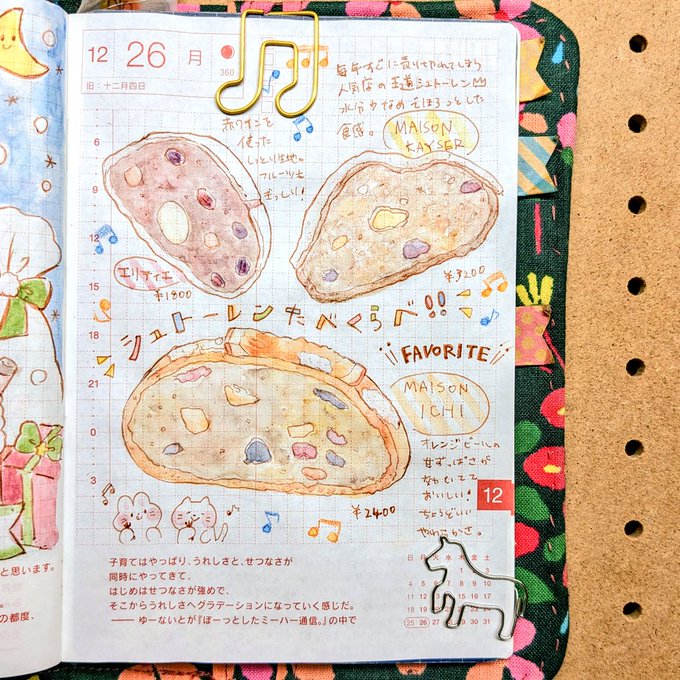 12 26 月
360
旧:十二月四日
毎年すぐに売りきれてしまう
人気店の王道シュトーレン
水分少なめ そぼろっとした
食感。
MAISON
KAYSER
¥3200
赤ワインを
使った
しっとり生地。
フルーツも
ぎっしり!
エリティエ
¥1800
シュトーレンたべくらべ!!
FAVORITE
MAISON
ICHI
オレンジピールの
甘ずっぱさが
なんてって
おいしい!
ちょうどいい
やわらかさ。
¥2400
6
9
12
15
18
21
0
3
12
子育てはやっぱり、うれしさと、せつなさが
同時にやってきて、
はじめはせつなさが強めで、
そこからうれしさへグラデーションになっていく感じだ。
――ゆーないとが『ぼーっとしたミーハー通信。』の中で
日 月 火 水 木 金 土
1 2 3
4 5 6 7 8 9 10
11 12 13
18 19 20
25 26 27
と思います。
の都度、